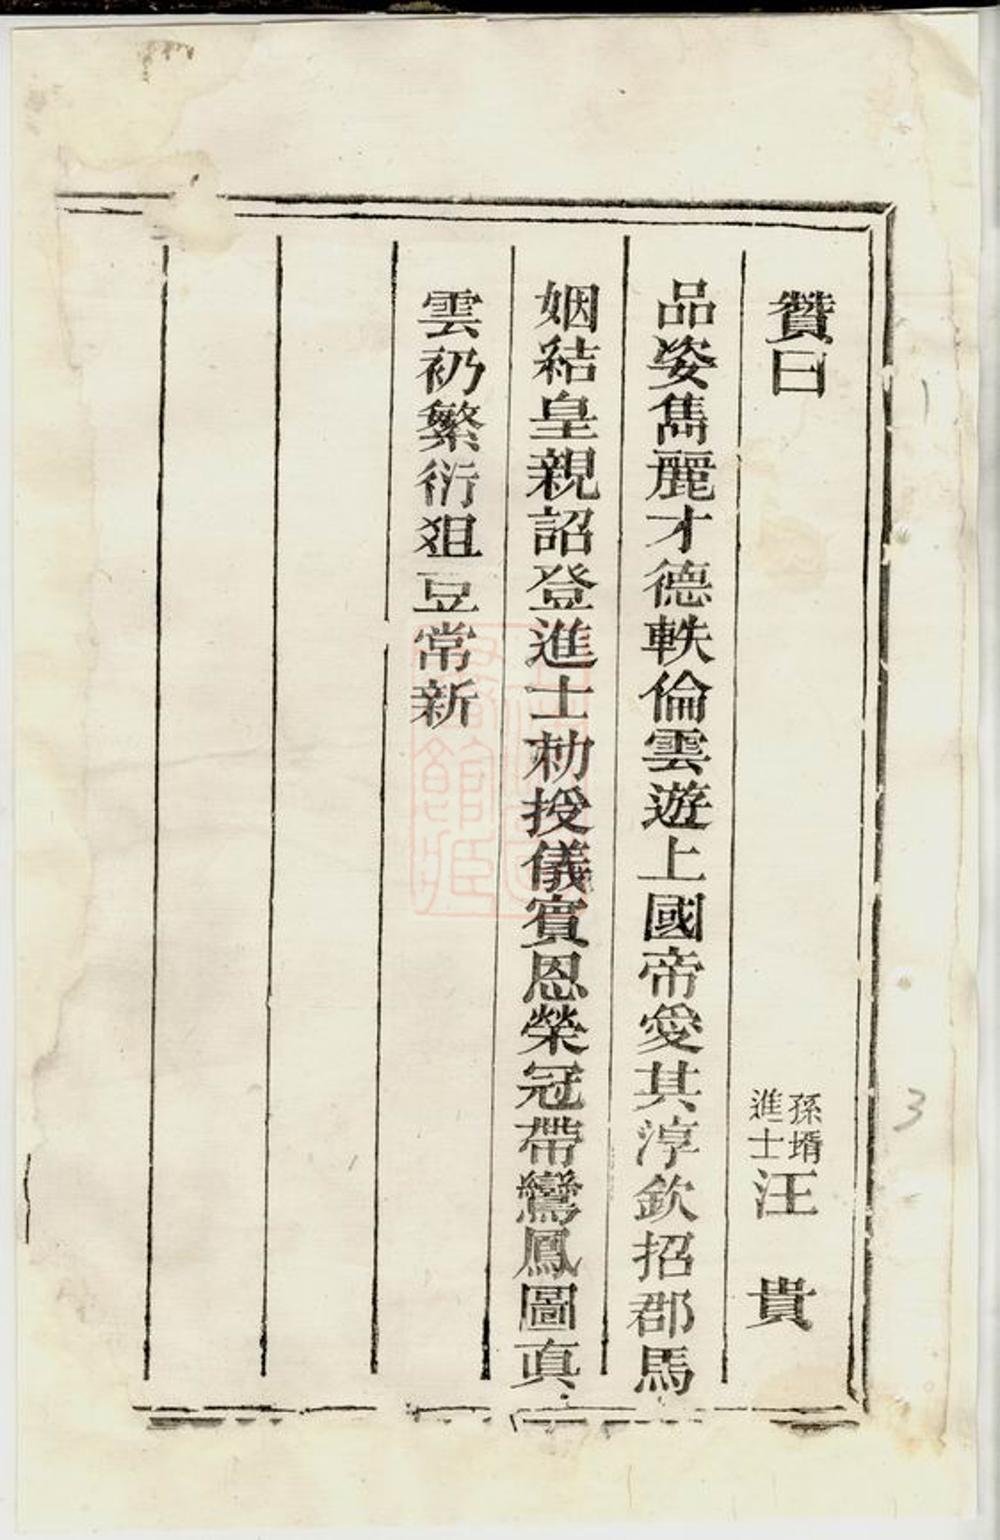 贊曰 孫壻進士汪 貴
品姿雋麗才德軼倫雲遊上國帝愛其淳欽招郡馬
姻結皇親詔登進士勑授儀賓恩榮冠帶鸞鳳圖真
雲礽繁衍俎豆常新
3